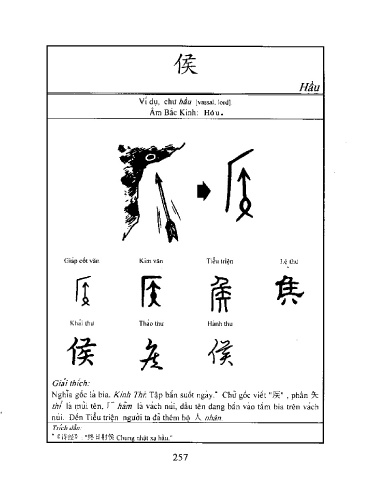 侯
Hầu
Ví dụ, chư hầu [vassal, lord]
Âm Bắc Kinh: Hóu.
Giáp cốt văn Kim văn Tiểu triện Lệ thư
Khải thư Thảo thư Hành thư
侯
Giải thích:
Nghĩa gốc là bia. Kinh Thi: Tập bắn suốt ngày." Chữ gốc viết "矦", phần 矢
thỉ là mũi tên, 厂 hầm là vách núi, đầu tên đang bắn vào tấm bia trên vách
núi. Đến Tiểu triện người ta đã thêm bộ 人 nhân
Trích dẫn:
"《诗经》. "终日射侯 Chung nhật xạ hầu."
257